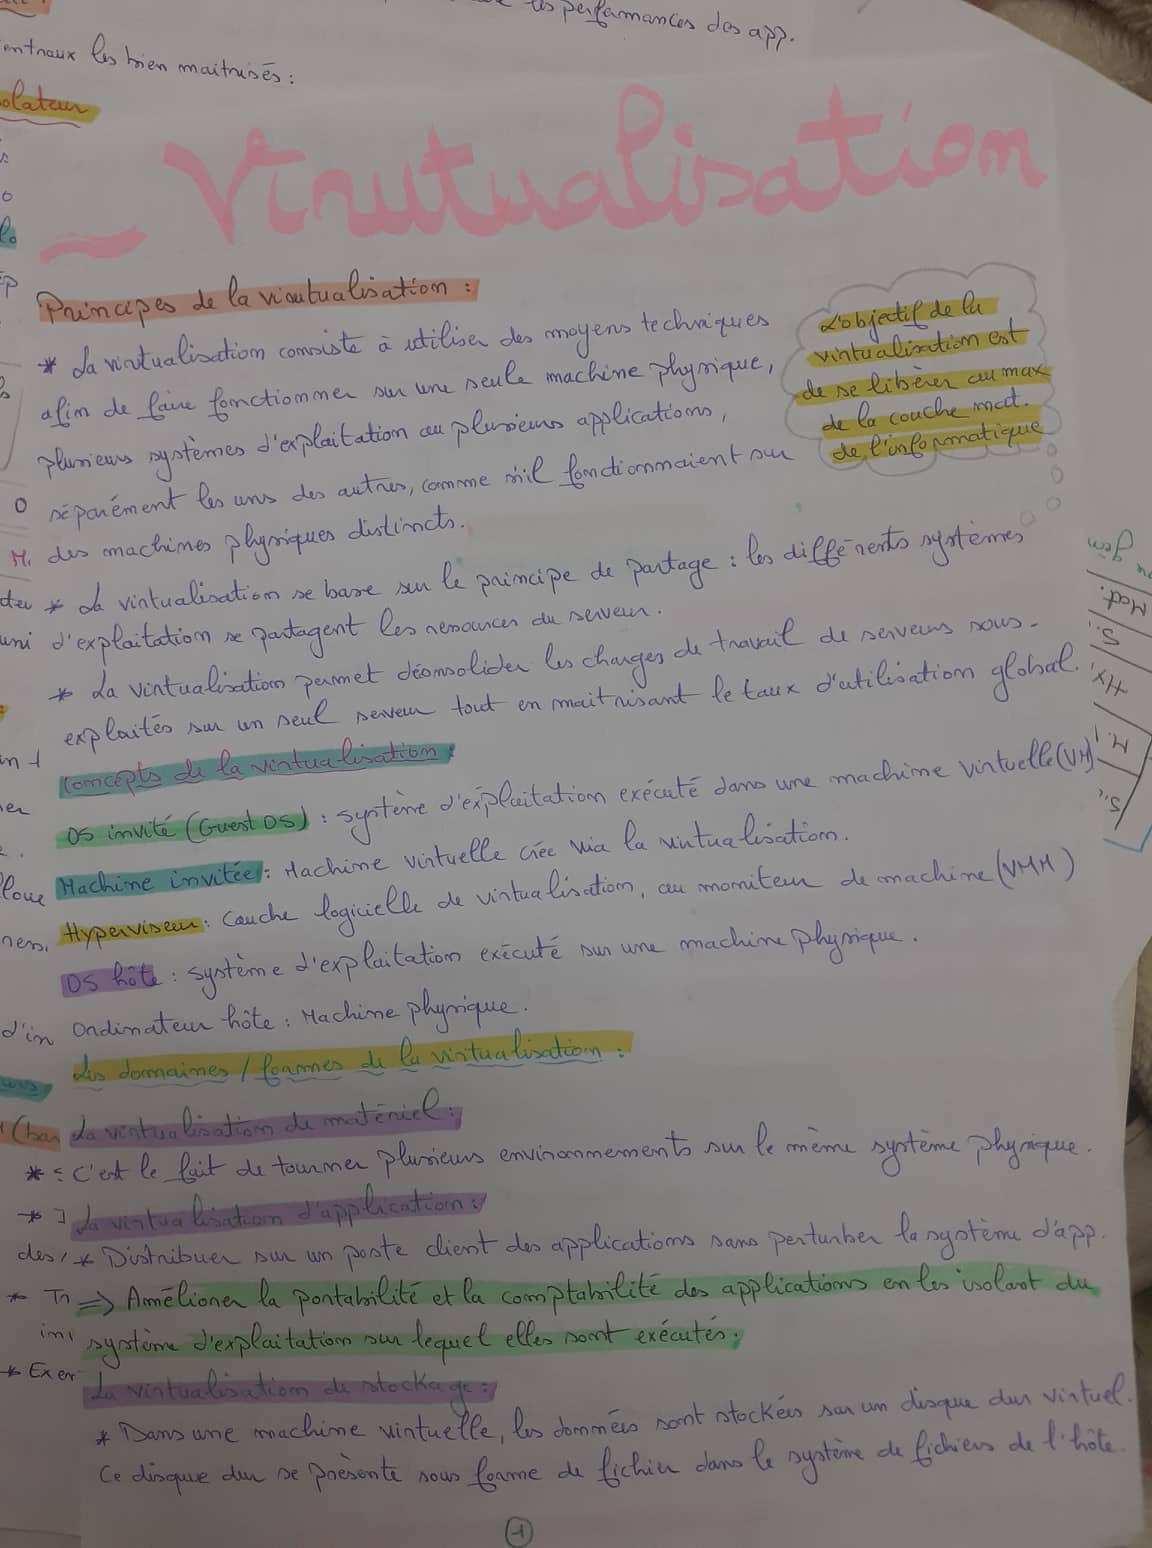 les performances des app.
entraux les bien maitrisés :
olateur
Virutualisation
Principes de la virutualisation :
L'objectif de la
virtualisation est
de se libérer au max
de la couche mat.
de l'informatique
* La virtualisation consiste à utiliser des moyens techniques
afin de faire fonctionner sur une seule machine physique,
plusieurs systèmes d'exploitation ou plusieurs applications,
séparément les uns des autres, comme s'il fonctionnaient sur
des machines physiques distincts.
* La virtualisation se base sur le principe de partage : les différents systèmes
d'exploitation se partagent les ressources du serveur.
* La virtualisation permet déconsolider les charges de travail de serveurs sous-
exploités sur un seul serveur tout en maitrisant le taux d'utilisation global.
Concepts de la virtualisation :
OS invité (Guest OS) : système d'exploitation exécuté dans une machine virtuelle (VM)
Machine invitée : Machine virtuelle crée via la virtualisation.
Hyperviseur : Couche logicielle de virtualisation, ou moniteur de machine (VMM)
OS hôte : système d'exploitation exécuté sur une machine physique.
Ordinateur hôte : Machine physique.
Les domaines / formes de la virtualisation :
La virtualisation de matériel :
* : C'est le fait de tourner plusieurs environnements sur le même système physique.
La virtualisation d'application :
* Distribuer sur un poste client des applications sans perturber le système d'app.
=> Améliorer la portabilité et la comptabilité des applications en les isolant du
système d'exploitation sur lequel elles sont exécutés.
La virtualisation de stockage :
* Dans une machine virtuelle, les données sont stockées sur un disque dur virtuel.
Ce disque dur se présente sous forme de fichier dans le système de fichiers de l'hôte.
1